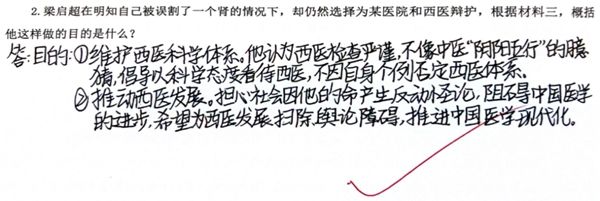 2. 梁启超在明知自己被误割了一个肾的情况下，却仍然选择为某医院和西医辩护，根据材料三，概括
他这样做的目的是什么？
答：目的：①维护西医科学体系。他认为西医检查严谨，不像中医"阴阳五行"的臆
猜，倡导以科学态度看待西医，不因自身个例否定西医体系。
②推动西医发展。担心社会因他的命产生反动怪论，阻碍中国医学
的进步，希望为西医发展扫除舆论障碍，推进中国医学现代化。